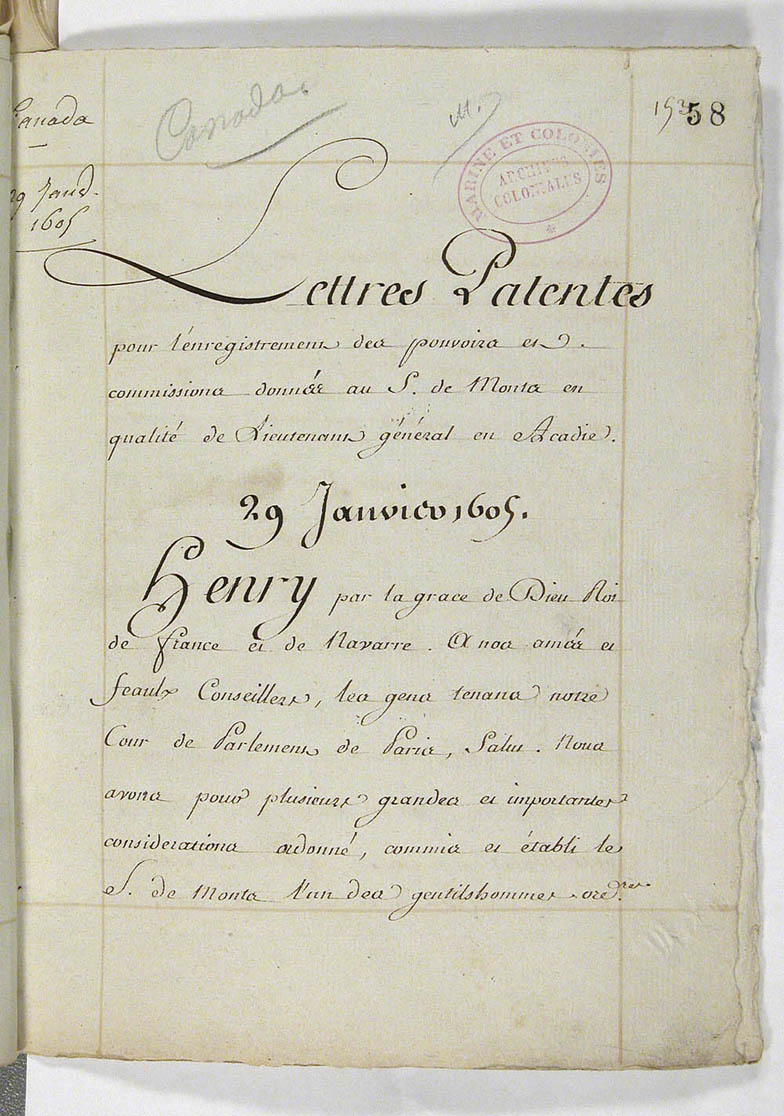 Canada
29 Janv.
1605
Canada.
58
MARINE ET COLONIES
ARCHIVES
COLONIALES
Lettres Patentes
pour l'énregistrement des pouvoirs et
commissions donnés au S. de Monts en
qualité de Lieutenant général en Acadie.
29 Janvier 1605.
Henry par la grace de Dieu Roi
de france et de Navarre. A nos amés et
feaulx Conseillers, les gens tenans notre
Cour de Parlement de Paris, Salut. Nous
avons pour plusieurs grandes et importantes
considerations ordonné, commis et établi le
S. de Monts l'un des gentilshommes ord.res